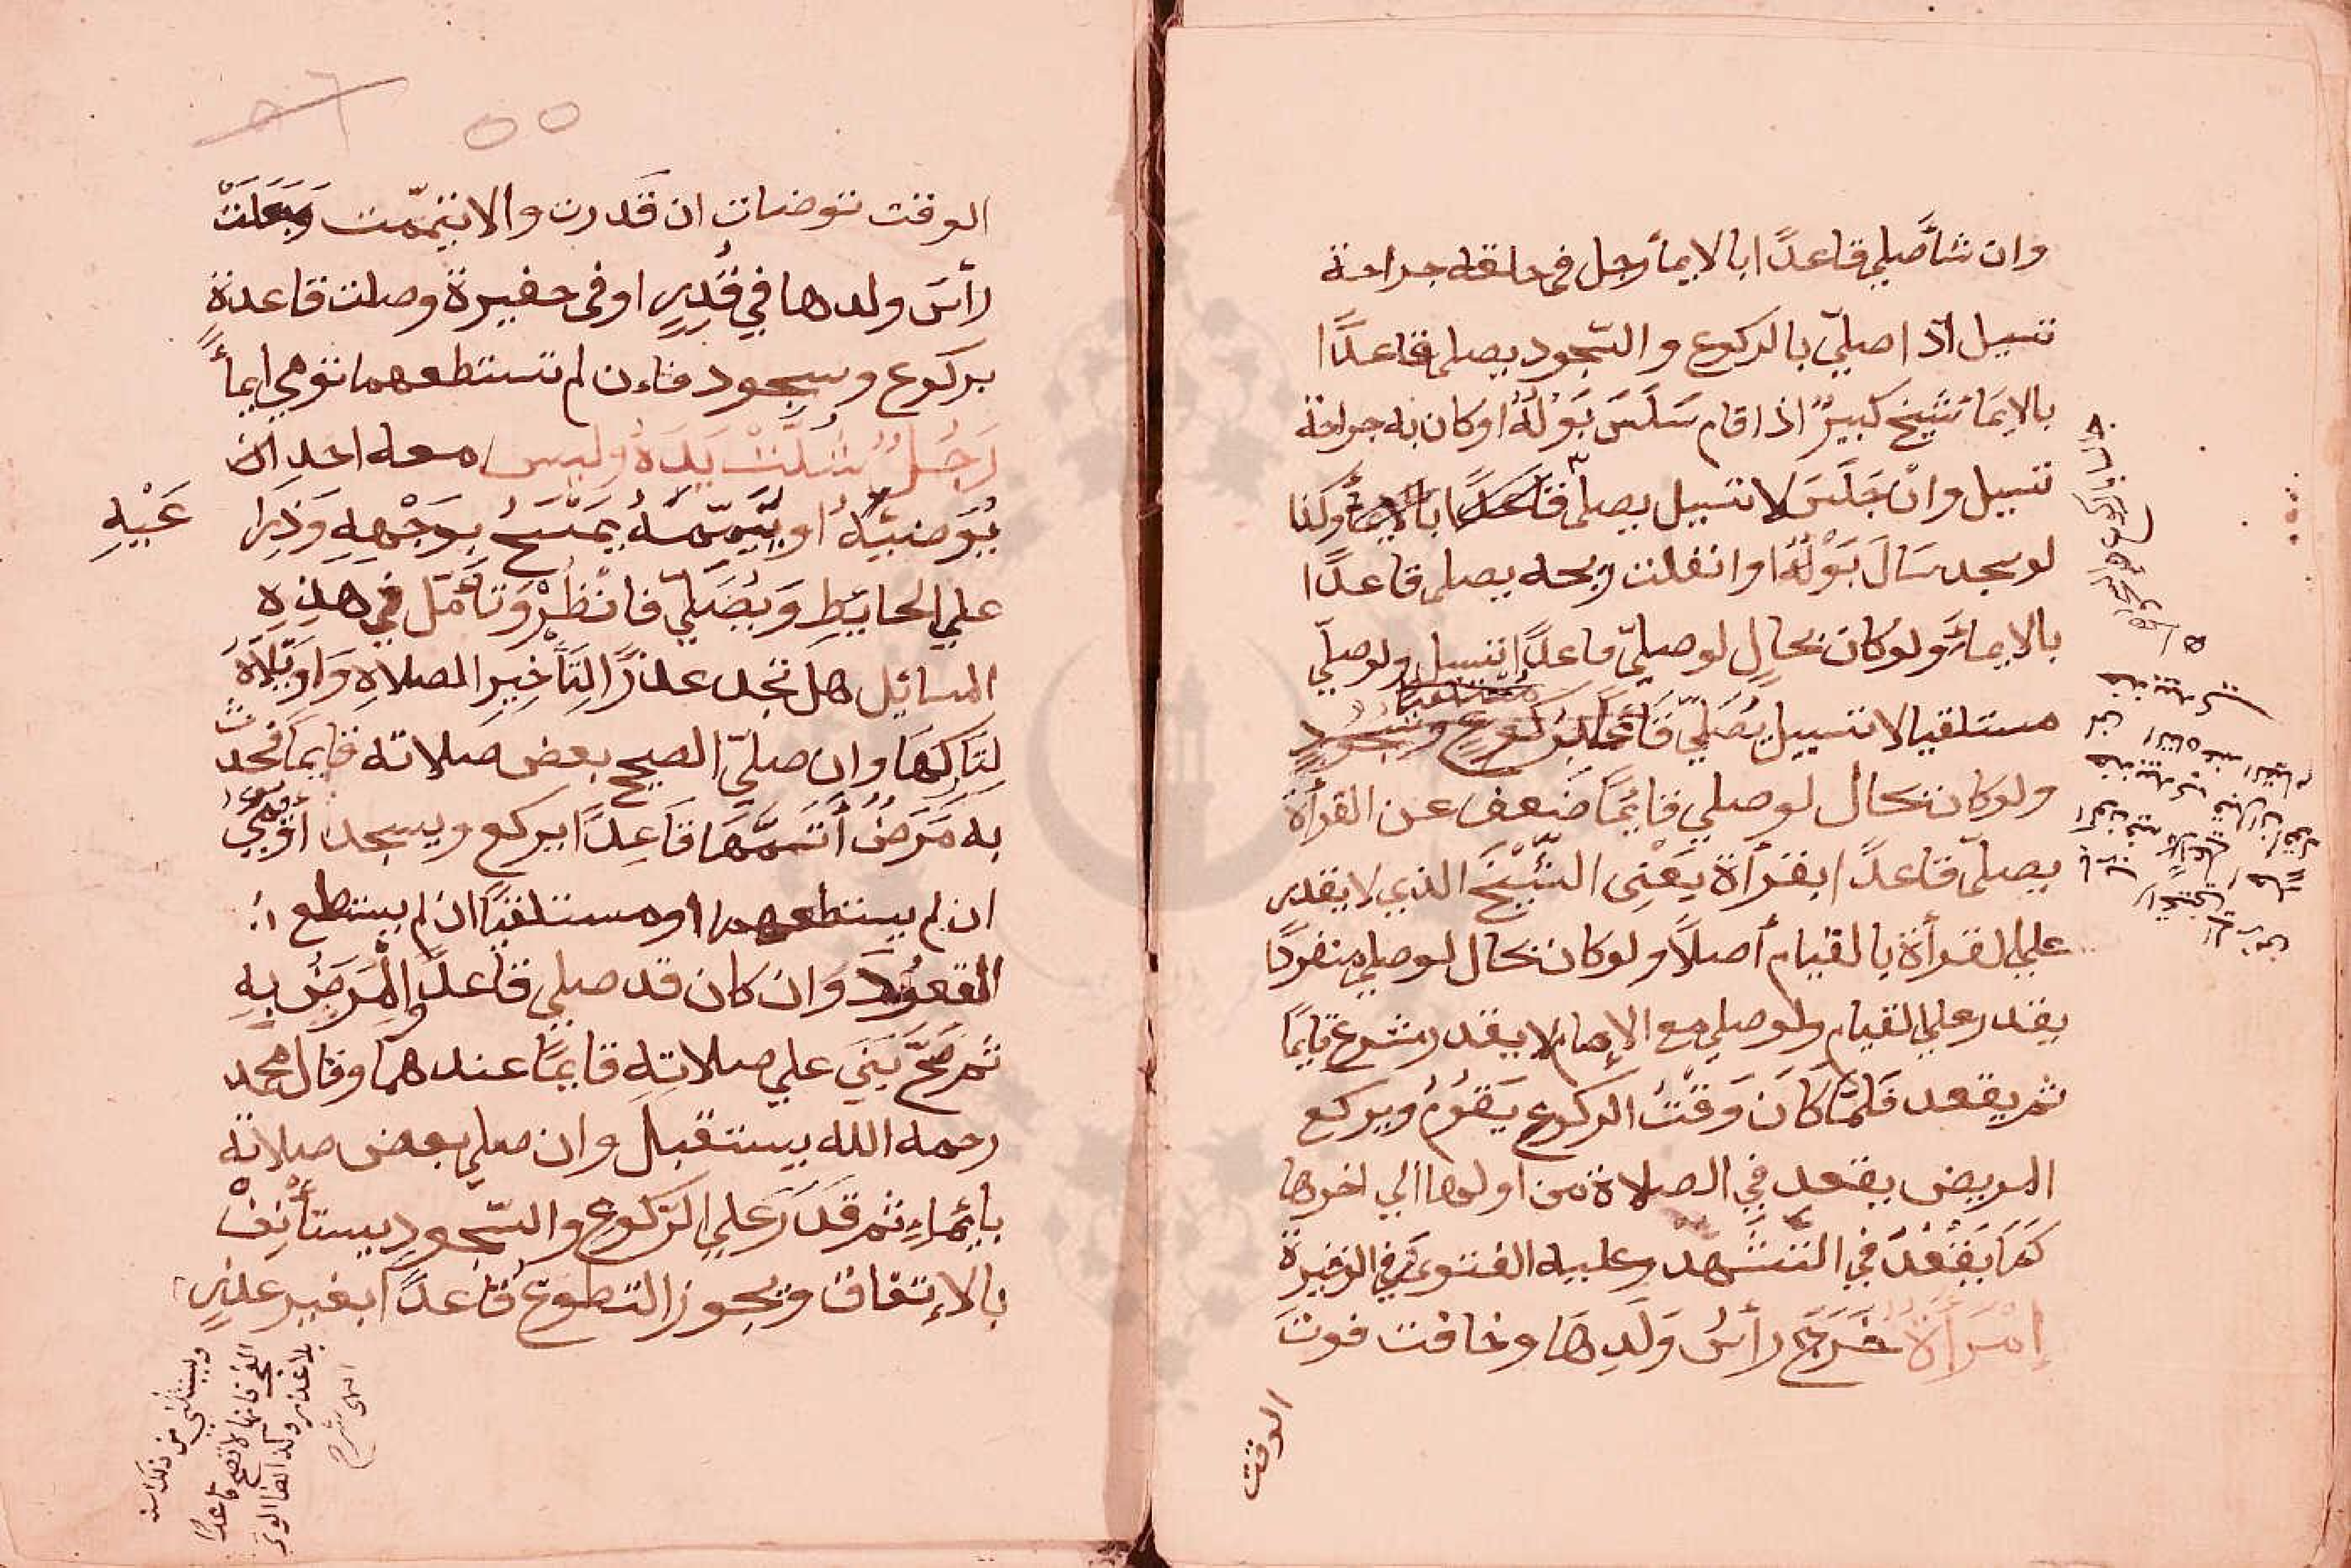 وان شأصلي قاعدًا بالايمأ رجل في حلقه جراحة
تسيل اذا صليّ بالركوع والسّجود يصلي قاعدًا
بالايمَا شيخ كبيرٌ اذا قام سَلَسَ بَوْلُهُ او كان به جراحة
تسيل وانْ جَلَسَ لا تسيل يصلي قاعدًا بالايمأ وكذا
لو سجد سَالَ بَوْلُهُ او انفلت ريحه يصلي قاعدًا
بالايماءِ ولو كان بحالٍ لو صليّ قاعدًا تسيل ولو صليّ
مستلقيا لا تسيل يُصَليّ قَائمًا بِرُكوعٍ وسجودٍ
ولو كان بحال لو صلي قايمًا ضَعف عن القرأة
يصليّ قاعدًا بقرأة يَعْنِى الشّيْخَ الذي لا يقدر
علي القرأة بالقيام أصلاً ولو كان بحال لو صلي منفردًا
يقدر علي القيام ولو صلي مع الإمام لا يقدر يشرع قايمًا
ثم يقعد فَلمّا كَانَ وَقْتُ الركوع يَقُومُ ويركع
المريض يقعد في الصلاة من اولها الي اخرها
كَمَا يَقْعُدُ في التشهد وعليه الفتوى في الذخيرة
إمْرَأَةٌ خَرَجَ رأسُ وَلَدِهَا وخافت فوتَ
الوقت
٥٥
الوقت توضات ان قَدرت والا تيمّمت وَجَعَلَتْ
رأسَ ولدها في قُدرٍ او في حفيرة وصلت قاعدة
بركوع وسجود فان لم تستطعهما تومي ايمأً
رَجُلٌ شَلَّتْ يَدَهُ وليس معه احد ان
يُوَضئِيَهُ او يُيَمِّمَهُ يَمْسَحُ بِوَجْهِهِ وَذِرَا
عَيْهِ
علي الحايطِ وَيُصَليّ فانْظُرْ وَتأَمّل في هَذِهِ
المسائل هل تجد عذرًا لِتَأخِيرِ الصلاةِ وَاوَيْلَاهُ
لِتَارِكِهَا وان صليّ الصيح بعض صلاته قايمًا فحدث
بِه مَرَضٌ أَتَمَّهَا قَاعِدًا يركع ويسجد اوْ يومي
ان لم يستطعهما او مستلقيًا ان لم يستطع
القعُودَ وَان كان قد صلي قاعدًا لِمَرَضٍ بِهِ
ثم صَحَّ بَنَي علي صلاتِهِ قايمًا عندهما وقال محمد
رحمه الله يستقبل وان صلي بعض صلاته
بايماءٍ ثم قدَرَ عَلي الرّكوعِ والسّجودِ يستأنِفْ
بالإتفاق ويجوز التطوعُ قاعدًا بغير عذرٍ
ويستثني من ذلك سنة
الفجر فانها لا تصح قاعدًا
بلا عذر وكذا الوتر